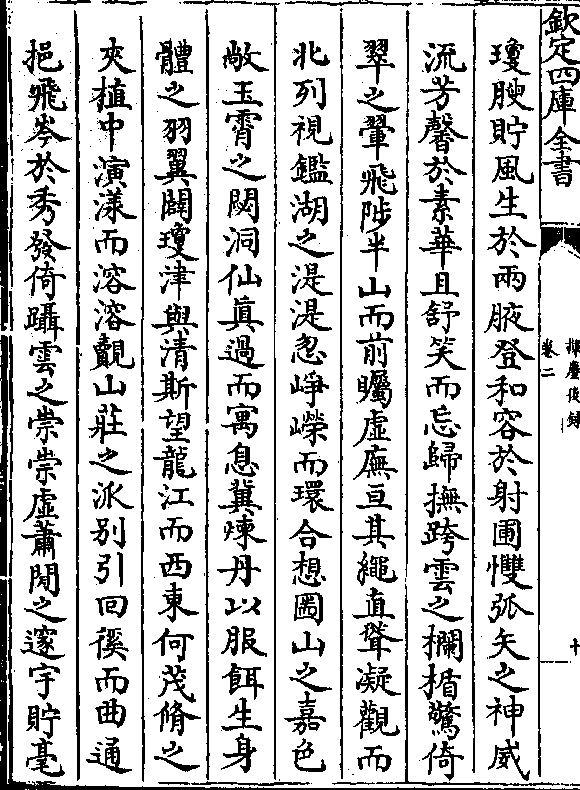 欽定四庫全書
揮麈後錄
卷二
十
瓊腴貯風生於兩腋登和容於射圃慴弧矢之神威
流芳馨於素華且舒笑而忘歸撫跨雲之欄楯驚倚
翠之翬飛陟半山而前矚虛廡亘其繩直聳凝觀而
北列視鑑湖之湜湜忽崢嶸而環合想圌山之嘉色
敞玉霄之閎洞仙真過而寓息冀煉丹以服餌生身
體之羽翼闢瓊津與清斯望龍江而西東何茂脩之
夾植中演漾而溶溶覿山莊之派別引回徯而曲通
挹飛岑於秀發倚躡雲之崇崇虛蕭閒之邃宇貯毫